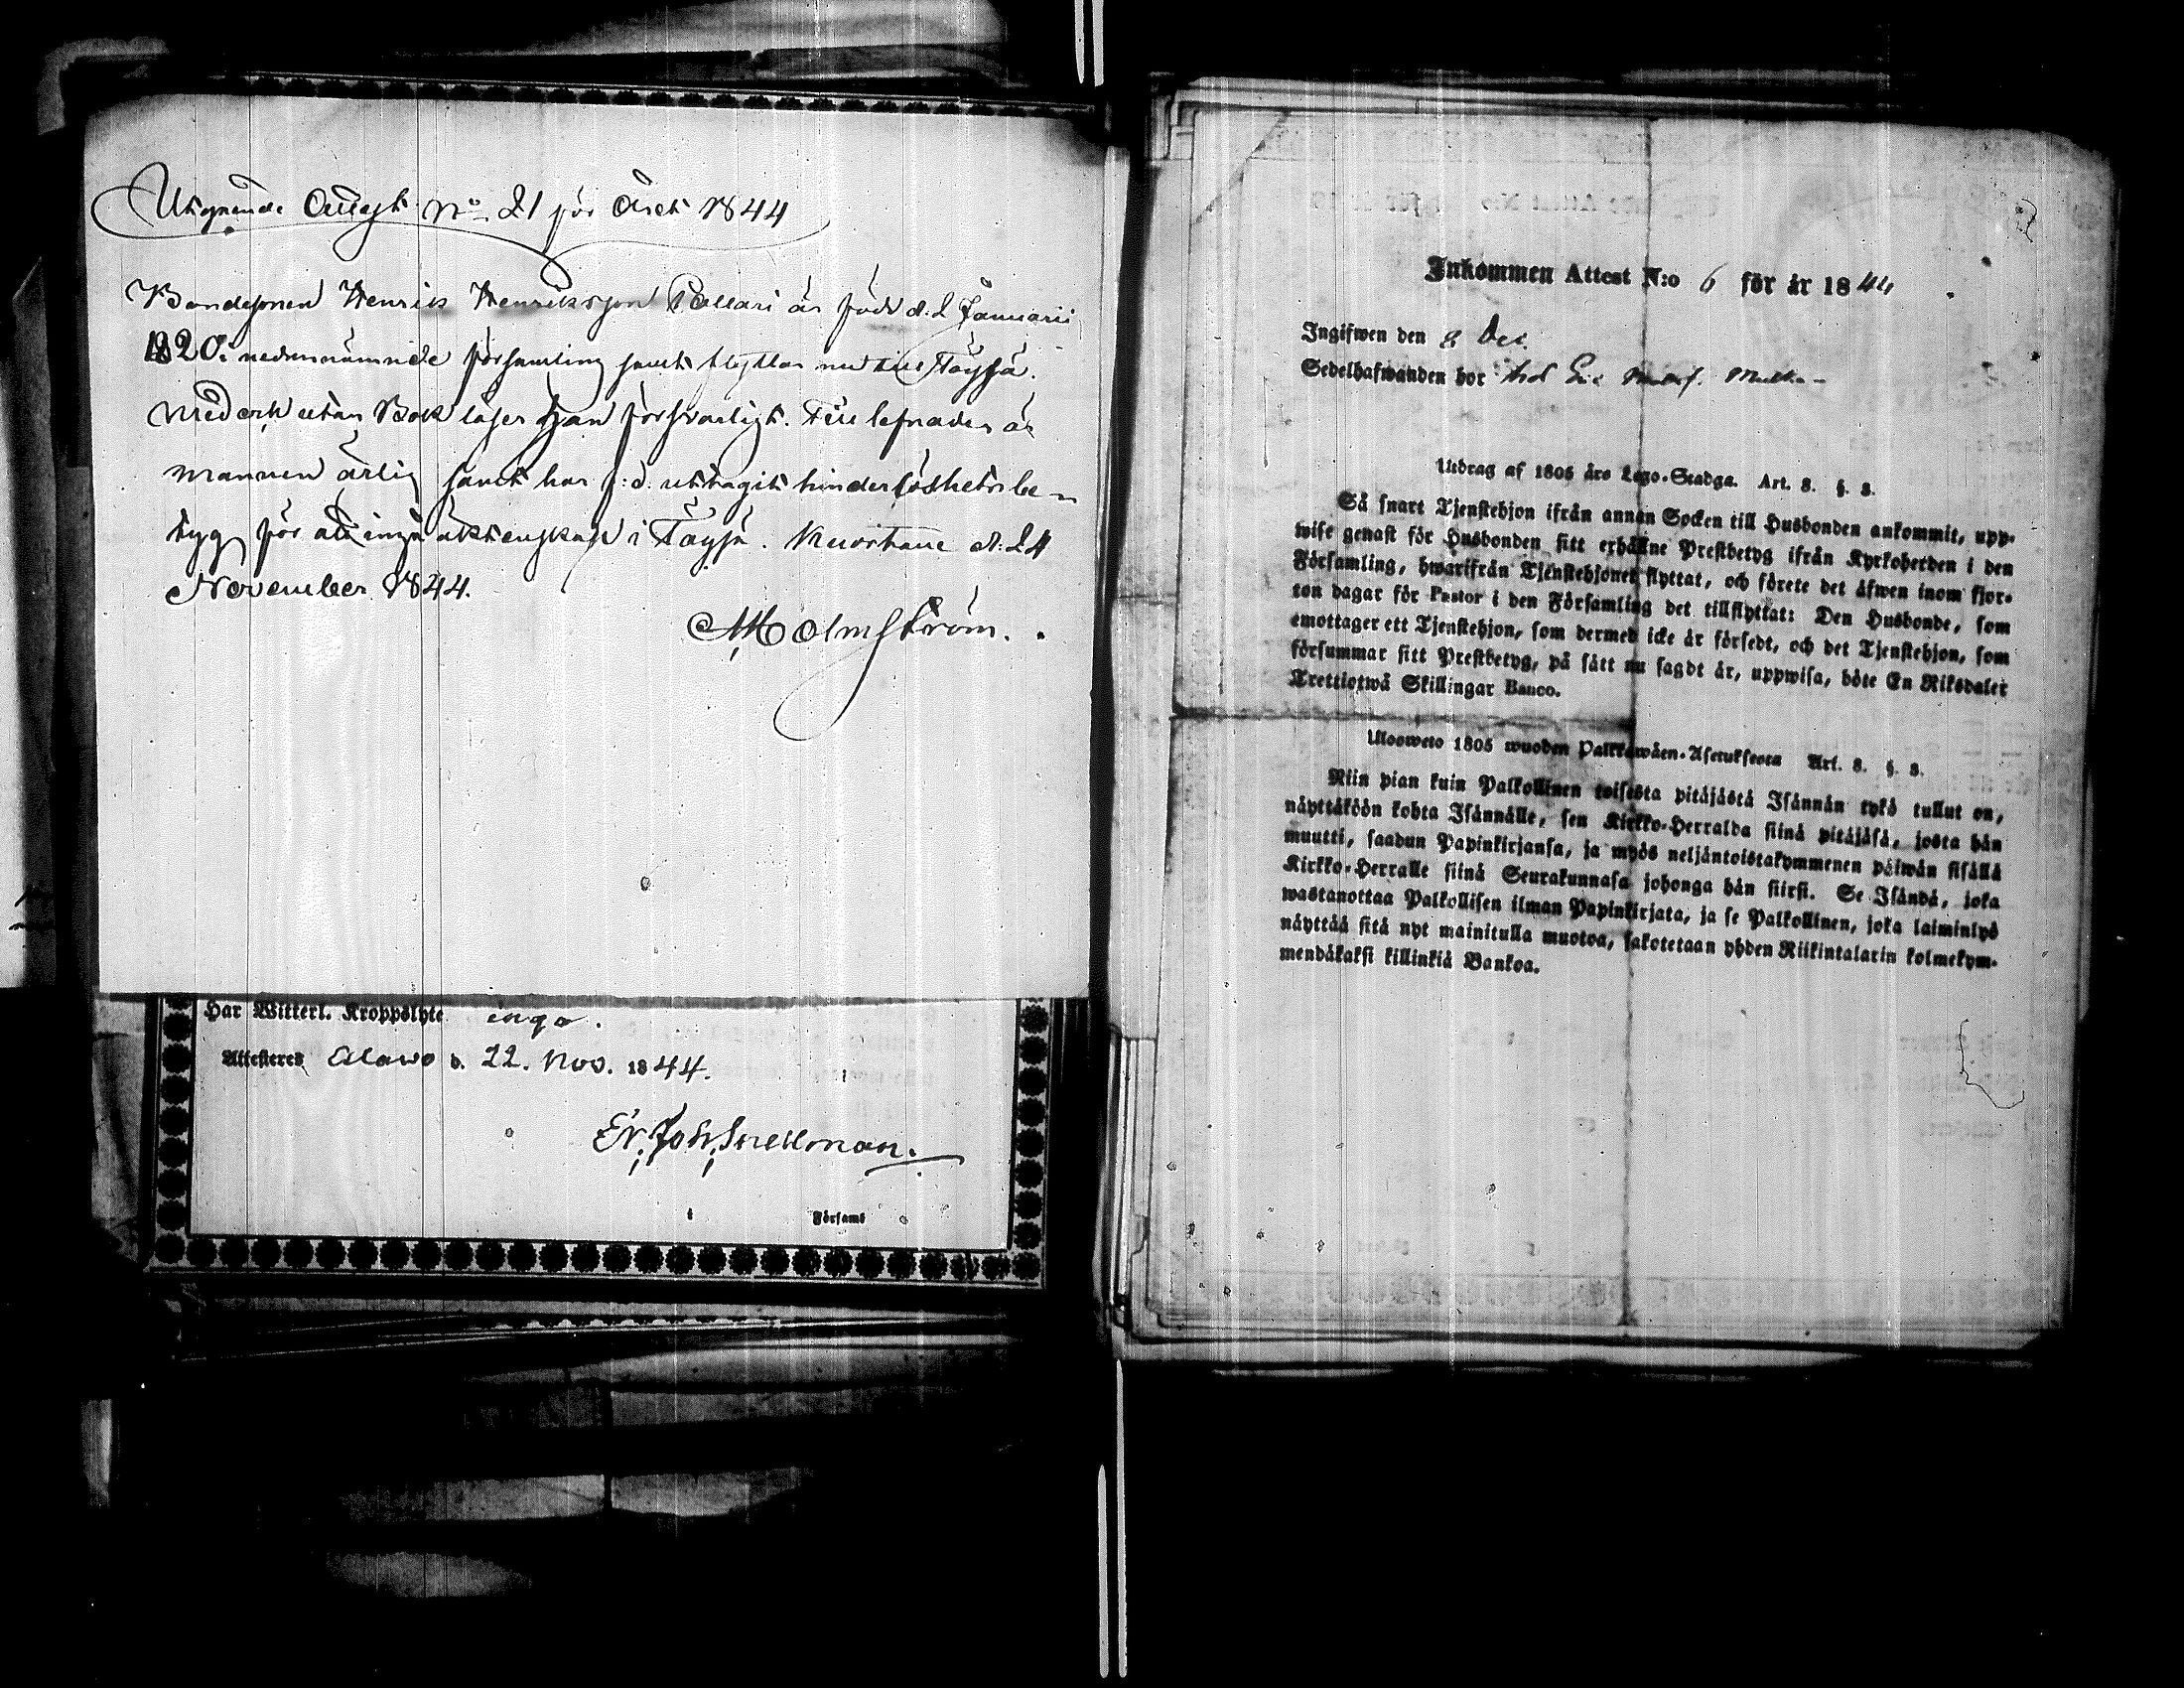 Utgående Attest No 21 för Året 1844
Bondesonen Henrik Henriksson Pallari är född d. 2 Januarii
1820 i nedannämnde församling samt flyttar nu till Töysä.
Med och utan Bok läser han försvarligt. Till lefnaden är
mannen ärlig samt har f. d. uttagit hinderlöshetsbe-
tyg för att ingå äktenskap i Töysä. Kuortane d. 24
November 1844.
Malmström.
Har Witterl. Kroppslyte inga.
Attesteres Alawo d. 22. Nov. 1844.
Er. Joh. Snellman.
i Församl
Inkommen Attest N:o 6 för år 1844
Ingifwen den 8 Dec.
Sedelhafwanden bor hos
Utdrag af 1805 års Lego-Stadga. Art. 8. §. 3.
Så snart Tjenstehjon ifrån annan Socken till Husbonden ankommit, upp-
wise genast för Husbonden sitt erhållne Prestbetyg ifrån Kyrkoherden i den
Församling, hwarifrån Tjenstehjonet flyttat, och förete det äfwen inom fjor-
ton dagar för Pastor i den Församling det tillflyttat: Den Husbonde, som
emottager ett Tjenstehjon, som dermed icke är försedt, och det Tjenstehjon, som
försummar sitt Prestbetyg, på sätt nu sagdt är, uppwisa, böte En Riksdaler
Trettiotwå Skillingar Banco.
Ulosweto 1805 wuoden Palkkawäen-Asetuksesta Art. 8. §. 3.
Niin pian kuin Palkollinen toisesta pitäjästä Isännän tykö tullut on,
näyttäköön kohta Isännälle, sen Kirkko-Herralda siinä pitäjäsä, josta hän
muutti, saadun Papinkirjansa, ja myös neljäntoistakymmenen päiwän sisällä
Kirkko-Herralle siinä Seurakunnasa johonga hän siirsi. Se Isändä, joka
wastanottaa Palkollisen ilman Papinkirjata, ja se Palkollinen, joka laiminlyö
näyttää sitä nyt mainitulla muotoa, sakotetaan yhden Riikintalarin kolmekym-
mendäkaksi killinkiä Bankoa.